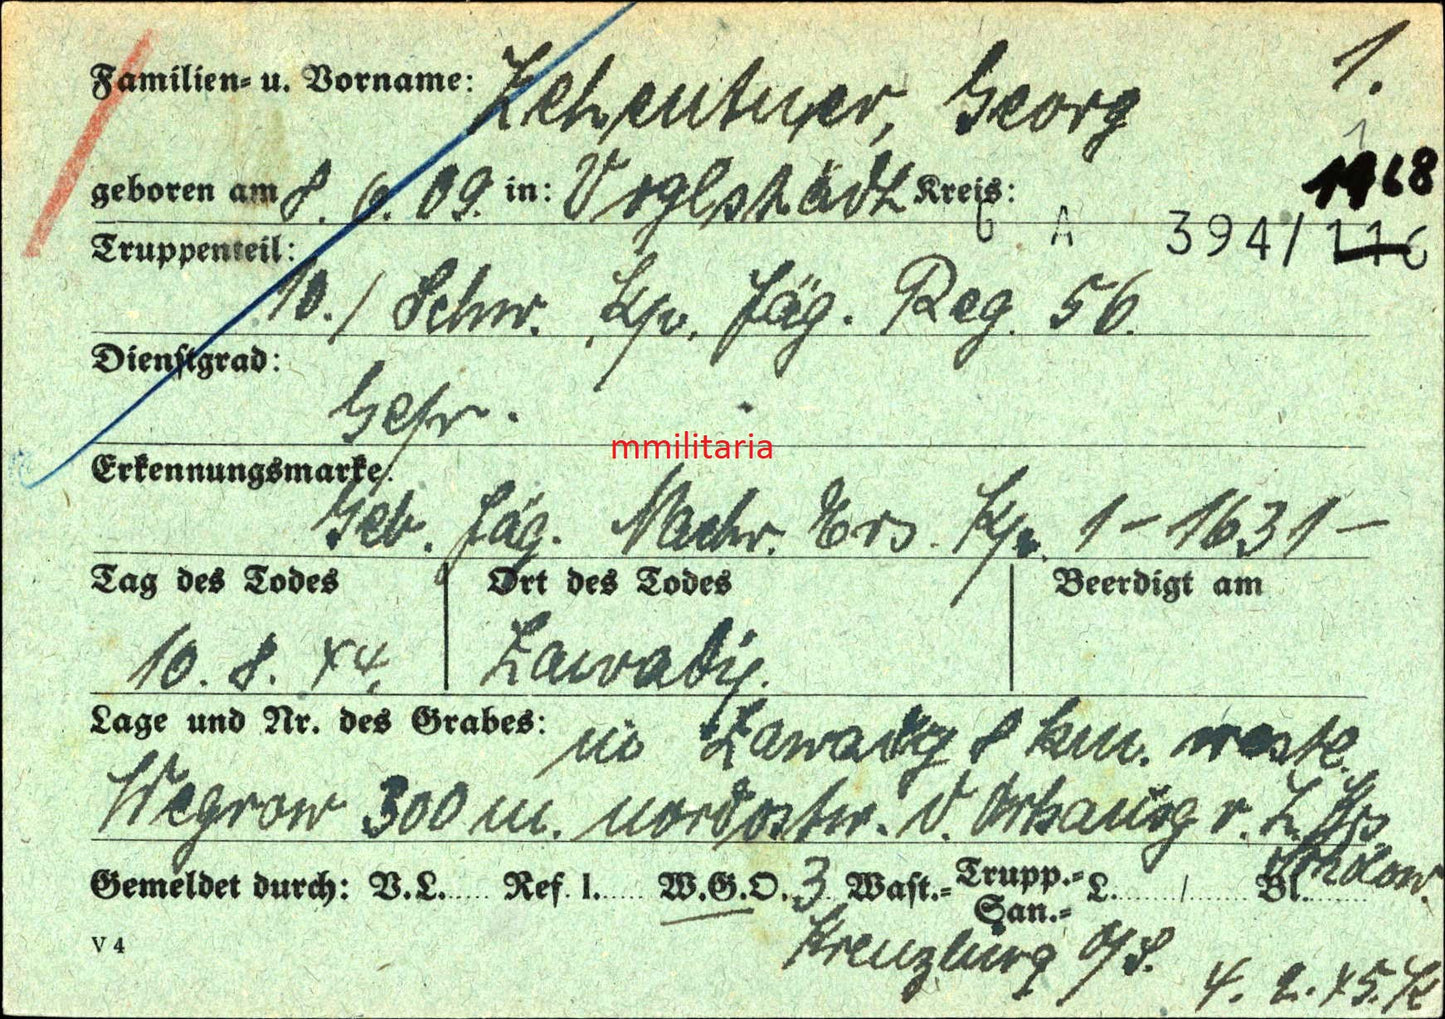 1.
Familien- u. Vorname: Zehentner, Georg
1
1168
geboren am 8. 6. 09. in: Voglstädt Kreis:
6 A 394/116
Truppenteil:
10./ Schw. Kp. Jäg. Reg. 56.
Dienstgrad:
Gefr.
mmilitaria
Erkennungsmarke:
Geb. Jäg. Nachr. Ers. Kp. 1 - 1631 -
Tag des Todes Ort des Todes Beerdigt am
10. 8. 44. Zawady.
Lage und Nr. des Grabes: in Zawady 8 km. westl.
Wegrow 300 m. nordostw. v. Ortsausg v. Z. Krs
Gemeldet durch: V.L..... Ref. 1..... W.G.O. 3 Wast.= Trupp.= San.= L......./...... Bl.......
Kreuzburg O/S.
V 4
4. 2. 45. K